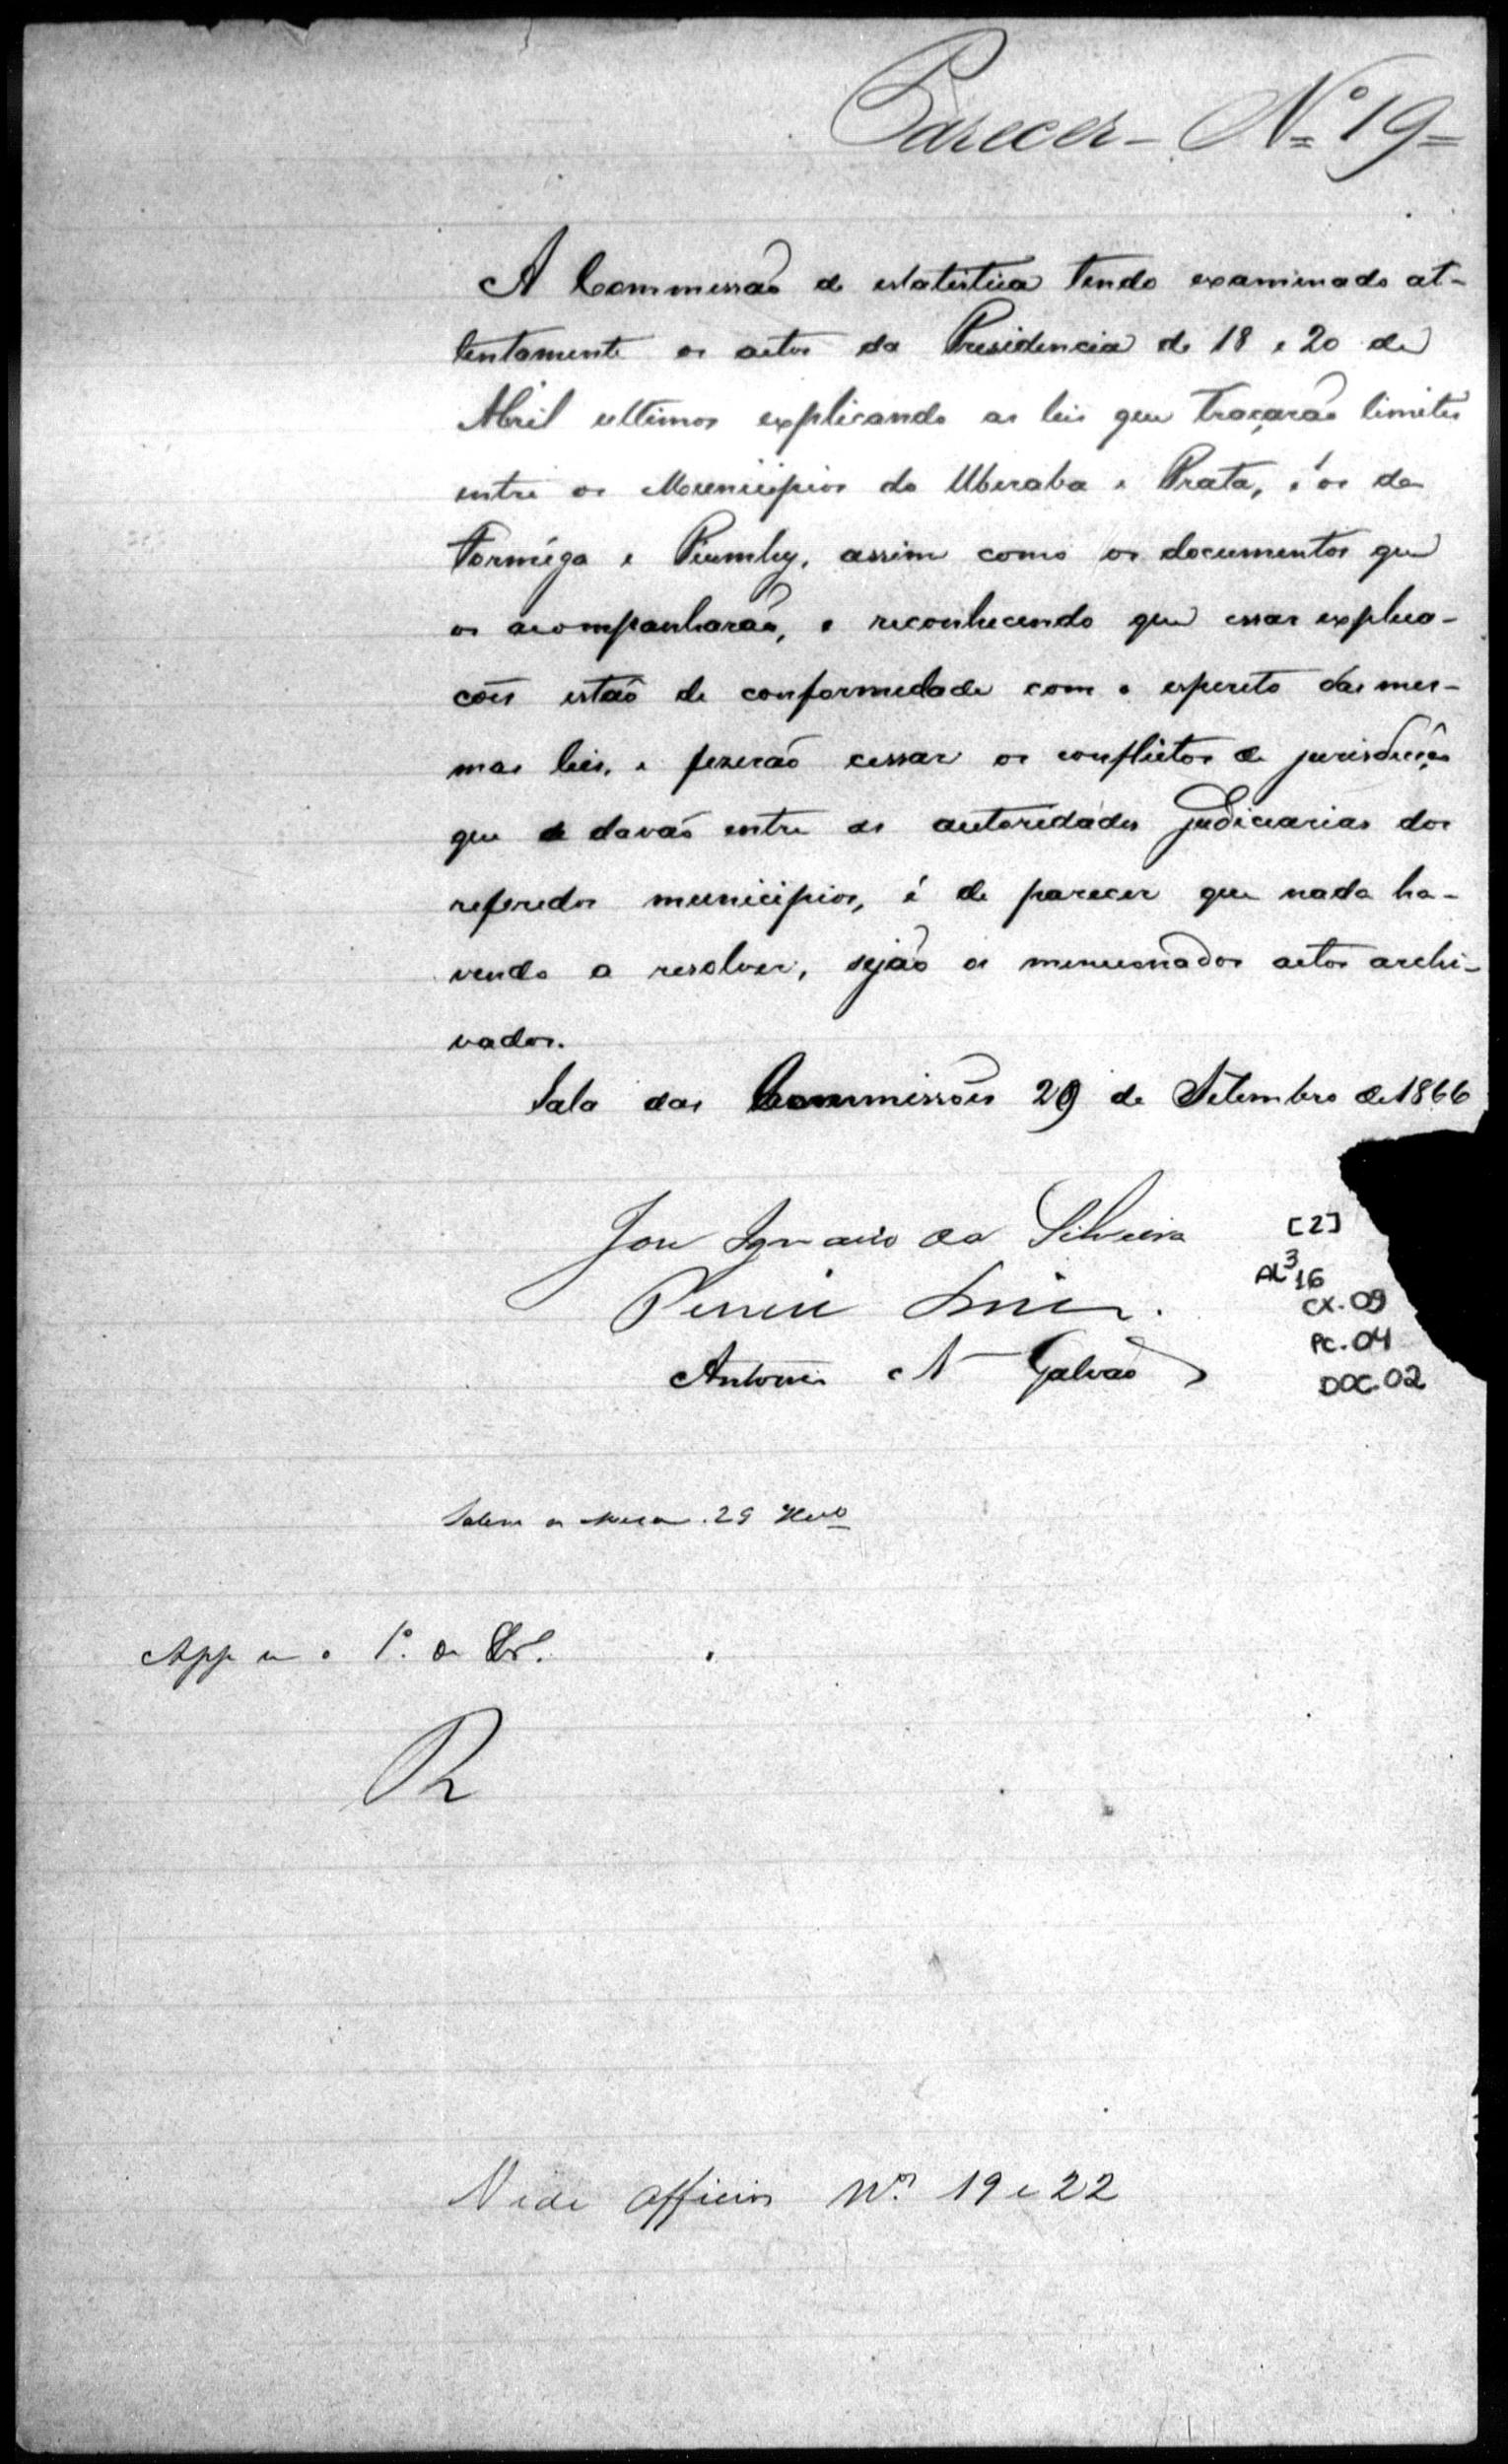 Parecer - Nº 19 =
A Commissão de estatistica tendo examinado at-
tentamente os actos da Presidencia de 18 e 20 de
Abril ultimos explicando as leis que traçarão limites
entre os Municipios do Uberaba e Prata, e os da
Formiga e Piumhy, assim como os documentos que
os acompanharão, e reconhecendo que essas explica-
ções estão de conformidade com o espirito das mes-
mas leis, e fizerão cessar os conflictos de jurisdicção
que se davão entre as autoridades judiciarias dos
referidos municipios, é de parecer que nada ha-
vendo a resolver, sejão os mencionados actos archi-
vados.
Sala das Commissões 29 de Setembro de 1866
José Ignacio da Silveira
Antonio N Galvão
[2]
AL³ 16
CX. 09
PC. 04
DOC. 02
29
App 1º
R
Vide officios Nos 19 e 22